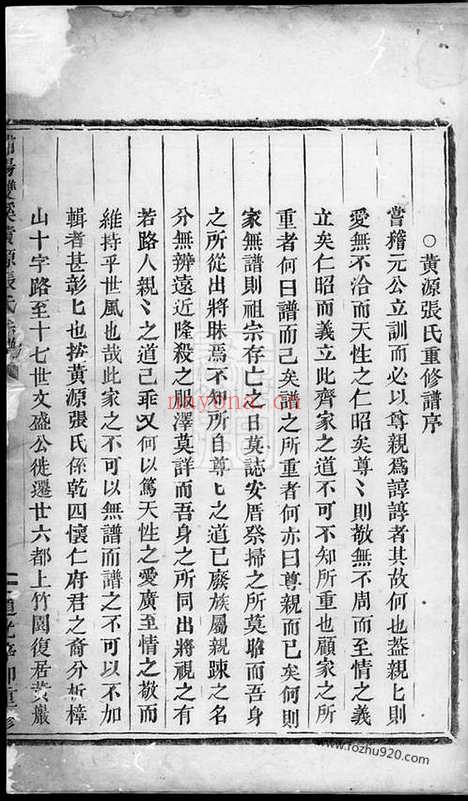 ○黃源張氏重修譜序
嘗稽元公立訓而必以尊親爲諄諄者其故何也葢親匕則
愛無不洽而天性之仁昭矣尊〻則敬無不周而至情之義
立矣仁昭而義立此齊家之道不可不知所重也顧家之所
重者何曰譜而已矣譜之所重者何亦曰尊親而已矣何則
家無譜則祖宗存亡之日莫誌安厝祭掃之所莫雎而吾身
之所從出將昧焉不知所自尊匕之道已廢族屬親踈之名
分無辨遠近隆殺之服澤莫詳而吾身之所同出將視之有
若路人親〻之道已乖又何以篤天性之愛廣至情之敬而
維持乎世風也哉此家之不可以無譜而譜之不可以不加
輯者甚彰匕也按黃源張氏係乾四懷仁府君之裔分析樟
山十字路至十七世文盛公徙遷廿六都上竹園復居黃巖
浦陽雙溪黃源張氏宗譜
道光 卯重修
nayona.cn
www.fozhu920.com